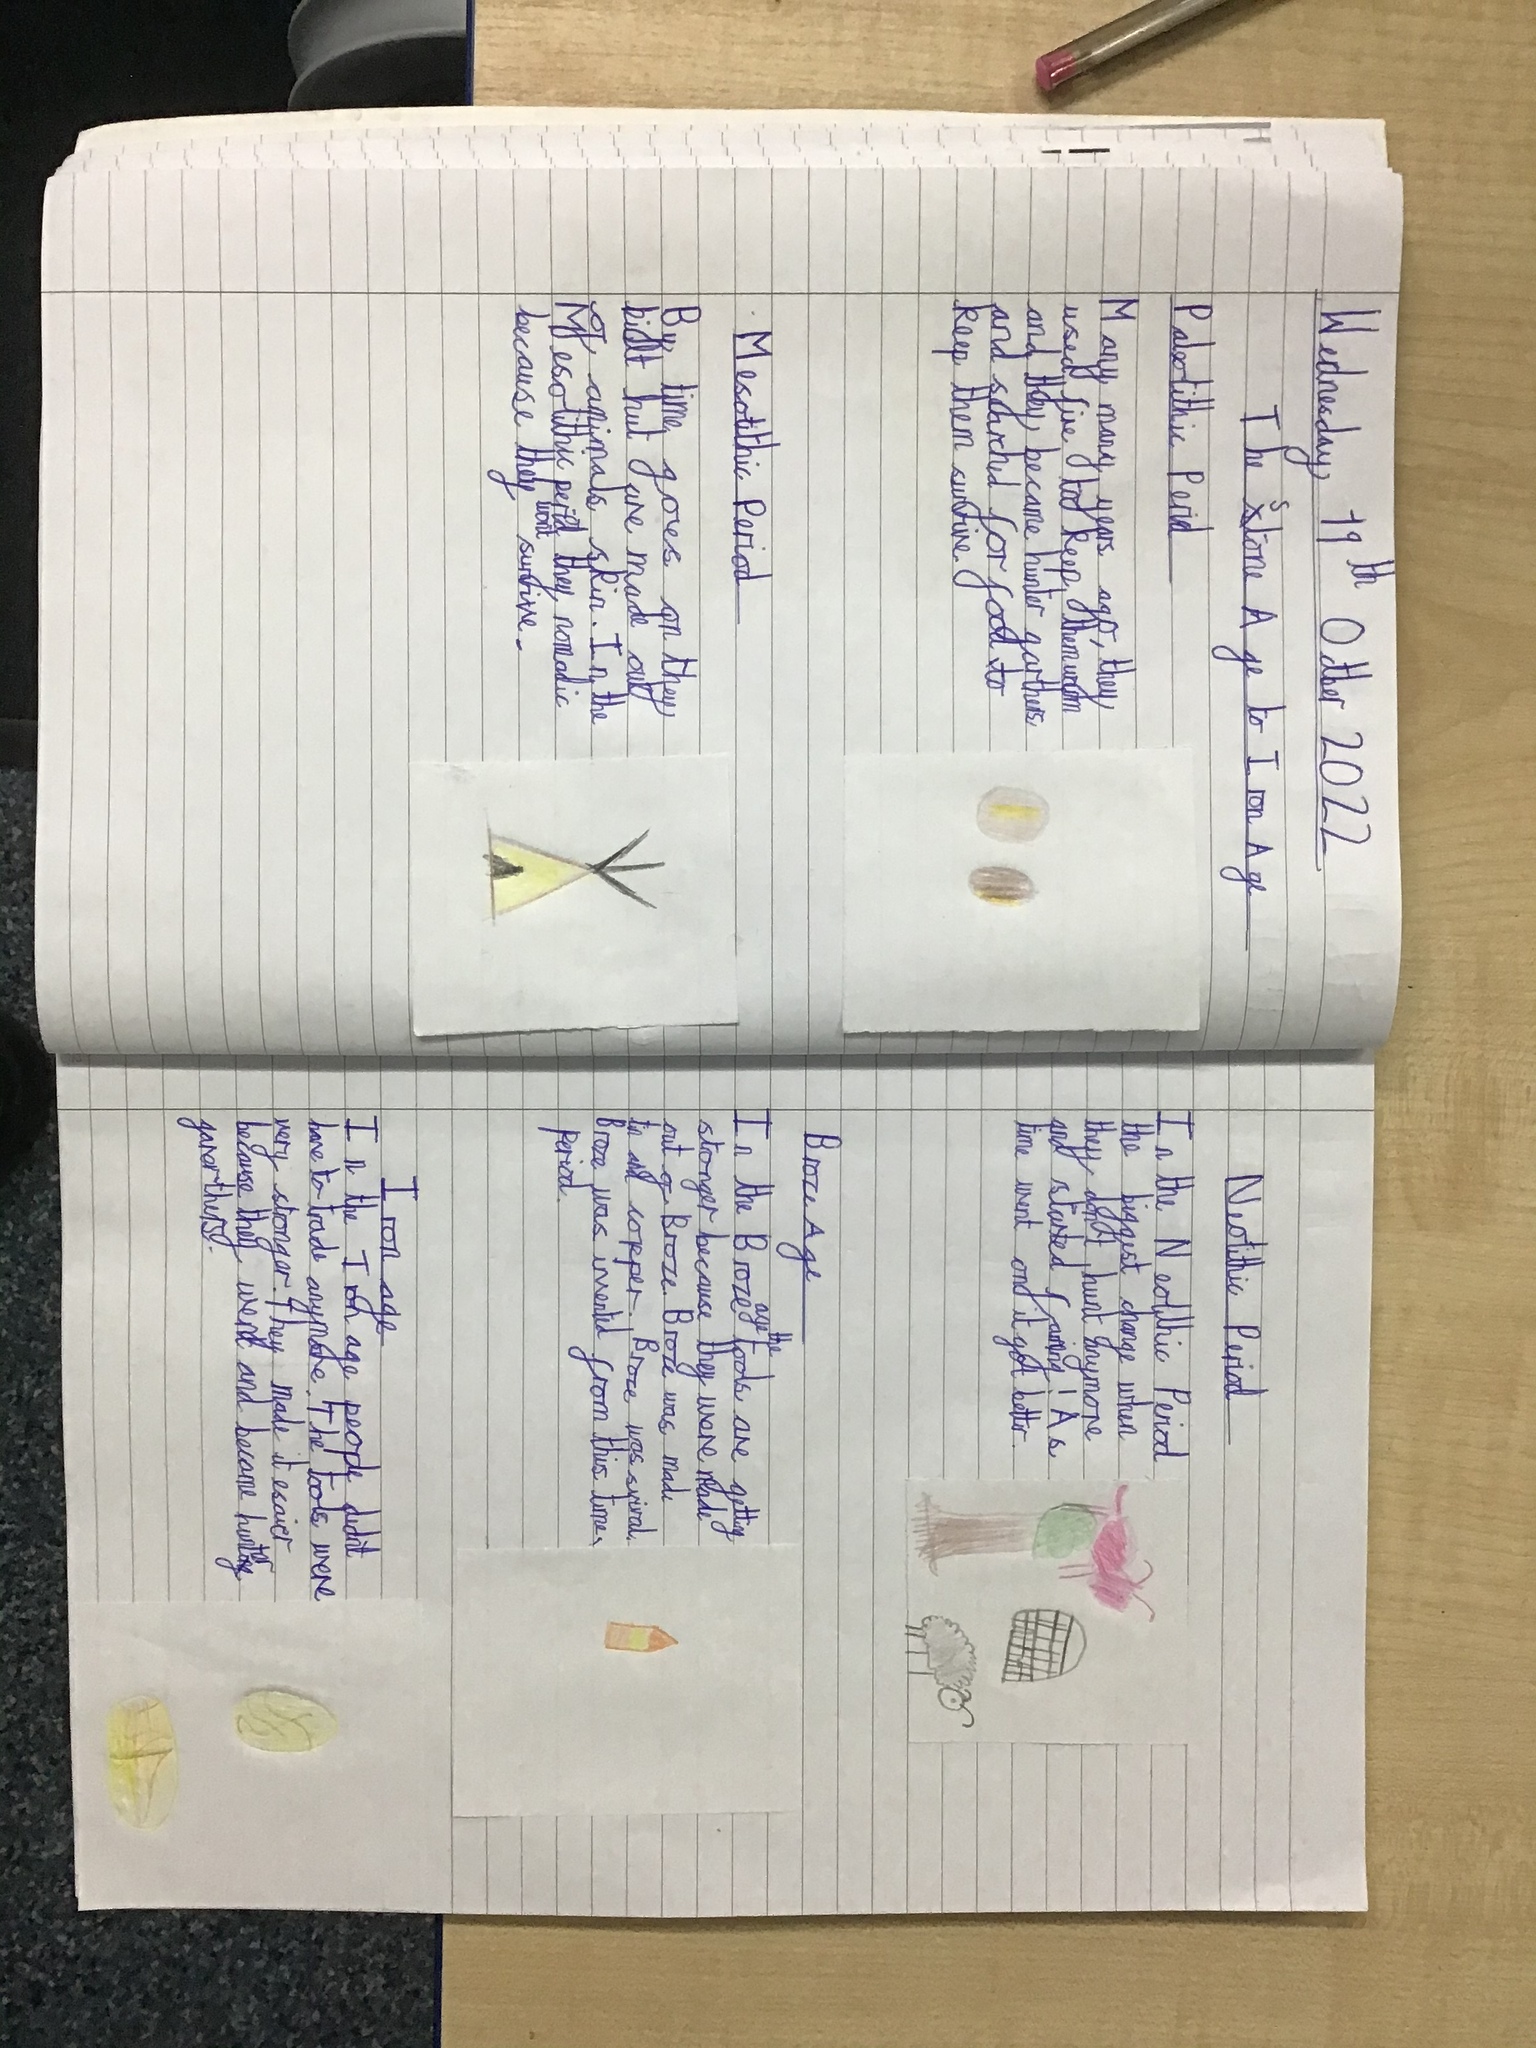 Wednesday 19th Octber 2022
The stone Age to Iron Age
Paleotithic Period
Many many years ago, they
used fire tod keep themwarm
and they became hunter garthers
and serarched for food to
keep them survive.
Mesotithic Period
By time goes on they
bidlt hut are made out
of aminals skin. In the
Mesotithic period they nomadic
because they wont survive.
Neotithic Period
In the Neotithic Period
the biggest change when
they don't hunt anymore
and started faming! As
time went on it got better.
Broze Age
In the Broze age the tools are getting
stronger because they were made
out of Broze. Broze was made
tin and copper. Broze was
Broze was invented from this time
period.
Iron age
In the Iron age people didn't
have to trade anymore. The tools were
very stronger. They made it esaier
because they went and became hunter
garthers.